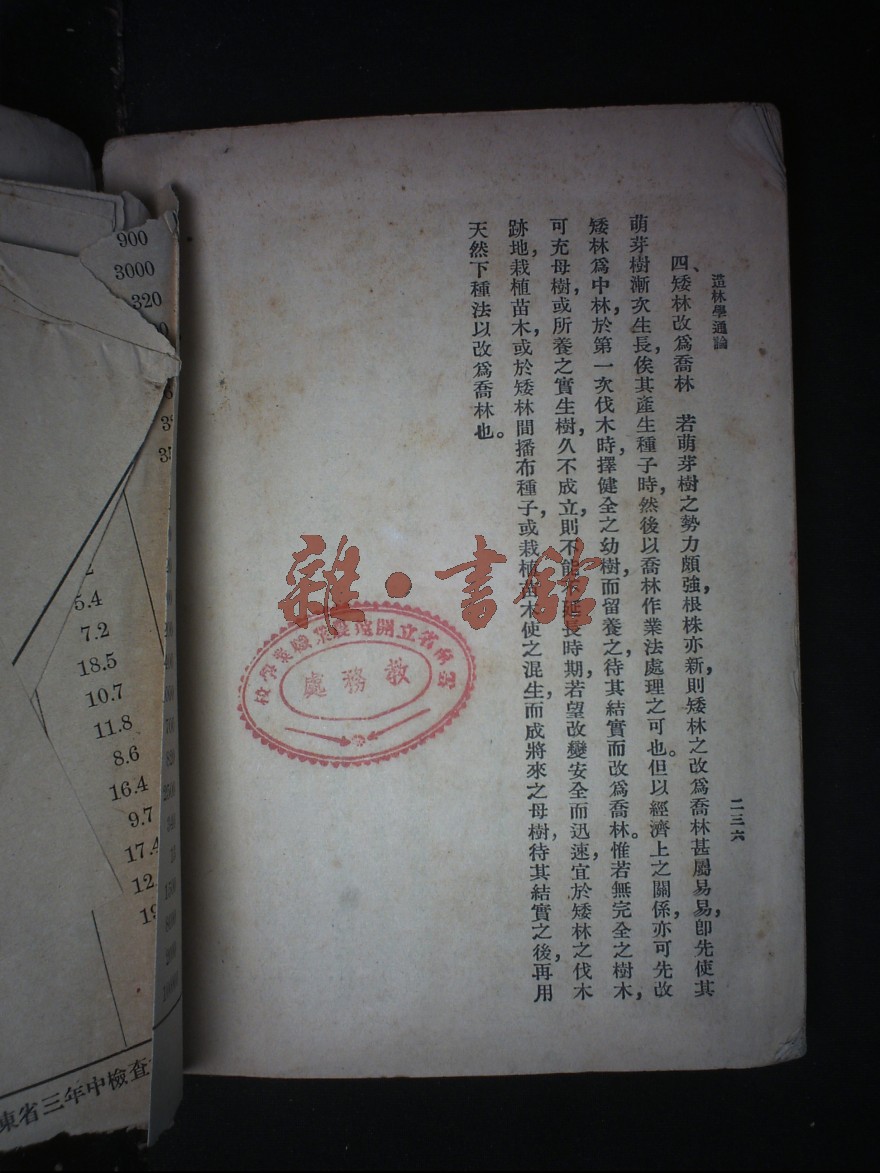 造林學通論
二三六
四、矮林改爲喬林　若萌芽樹之勢力頗強，根株亦新，則矮林之改爲喬林甚屬易易，卽先使其
萌芽樹漸次生長，俟其產生種子時，然後以喬林作業法處理之可也。但以經濟上之關係，亦可先改
矮林爲中林，於第一次伐木時，擇健全之幼樹而留養之，待其結實而改爲喬林。惟若無完全之樹木，
可充母樹，或所養之實生樹，久不成立，則不能不延長時期，若望改變安全而迅速，宜於矮林之伐木
跡地，栽植苗木，或於矮林間播布種子，或栽植苗木使之混生，而成將來之母樹，待其結實之後，再用
天然下種法以改爲喬林也。
雜·書館
雲南省立開遠農業職業學校
教務處
900
3000
320
5.4
7.2
18.5
10.7
11.8
8.6
16.4
9.7
17.4
12
東省三年中檢查